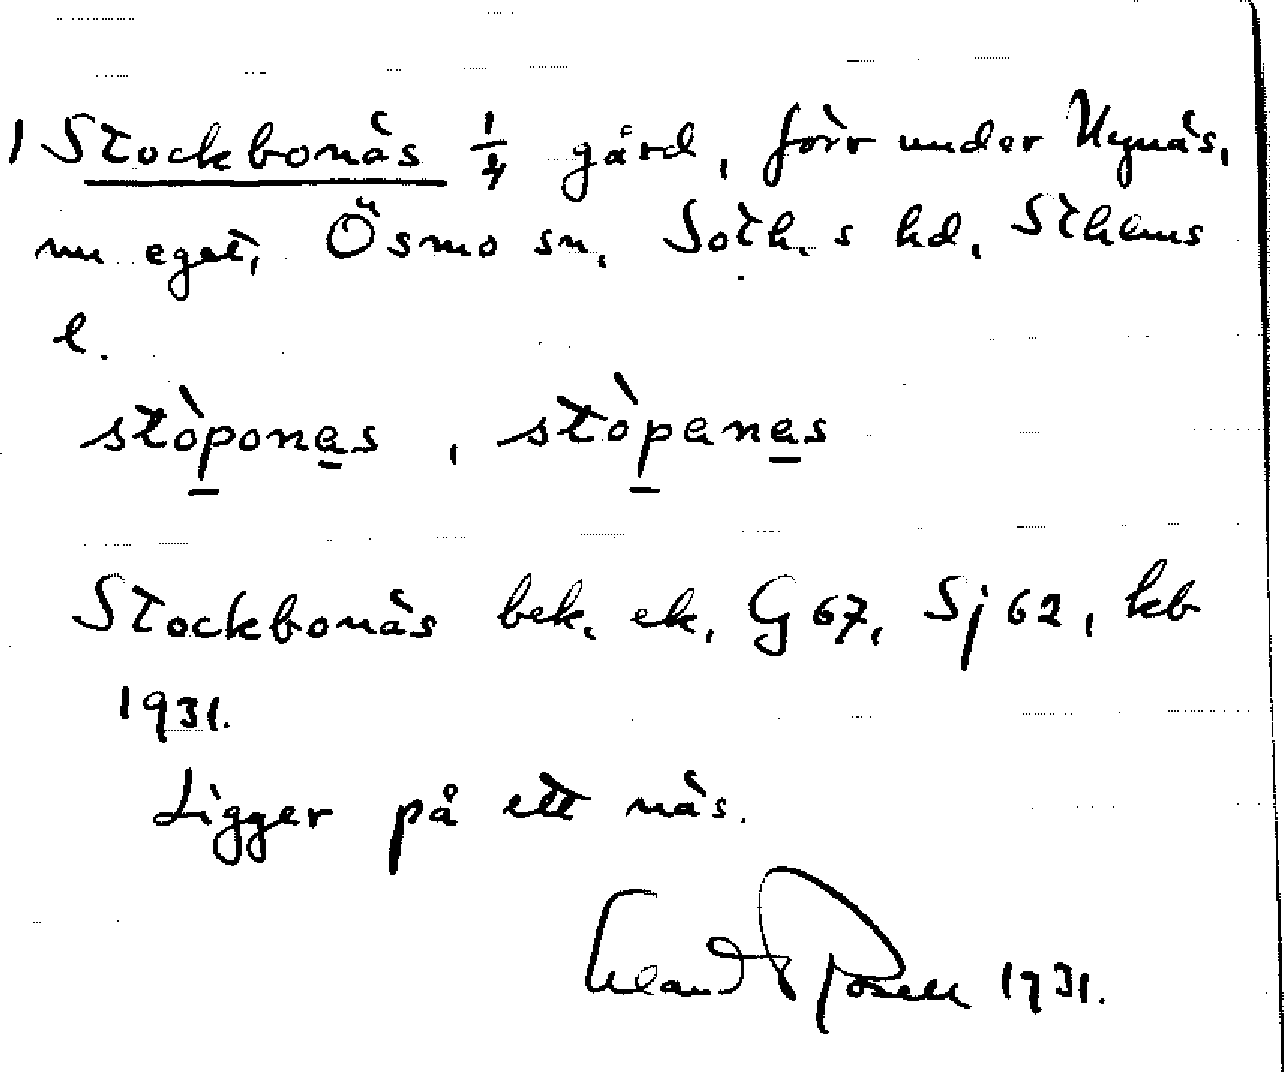 1 Stockbonäs 1/4 gård, förr under Nynäs,
nu eget, Ösmo sn, Soth. s hd, Sthlms
l.
stòponas, stòpanas
Stockbonäs bek. ek, G 67, Sj 62, kb
1931.
Ligger på ett näs.
1931.